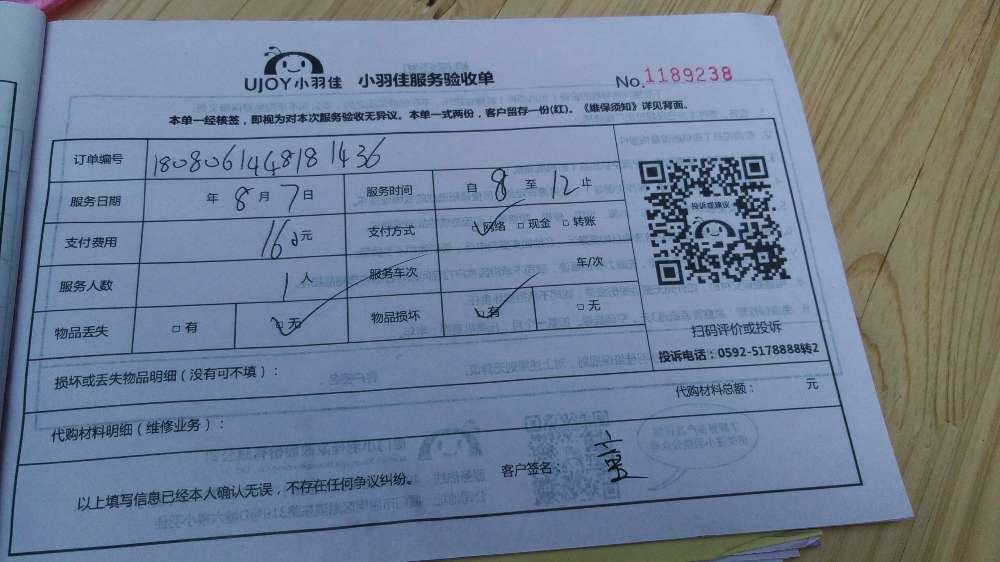 UJOY小羽佳 小羽佳服务验收单 No.1189238
本单一经核签，即视为对本次服务验收无异议。本单一式两份，客户留存一份(红)。《维保须知》详见背面。
订单编号 1808061448181436
服务日期 年 8 月 7 日 服务时间 自 8 至 12 止
支付费用 160 元 支付方式 □网络 □现金 □转账
服务人数 1 人 服务车次 车/次
物品丢失 □有 □无 物品损坏 □有 □无
投诉或建议
扫码评价或投诉
投诉电话：0592-5178888转2
损坏或丢失物品明细（没有可不填）：
代购材料明细（维修业务）： 代购材料总额： 元
以上填写信息已经本人确认无误，不存在任何争议纠纷。 客户签名：